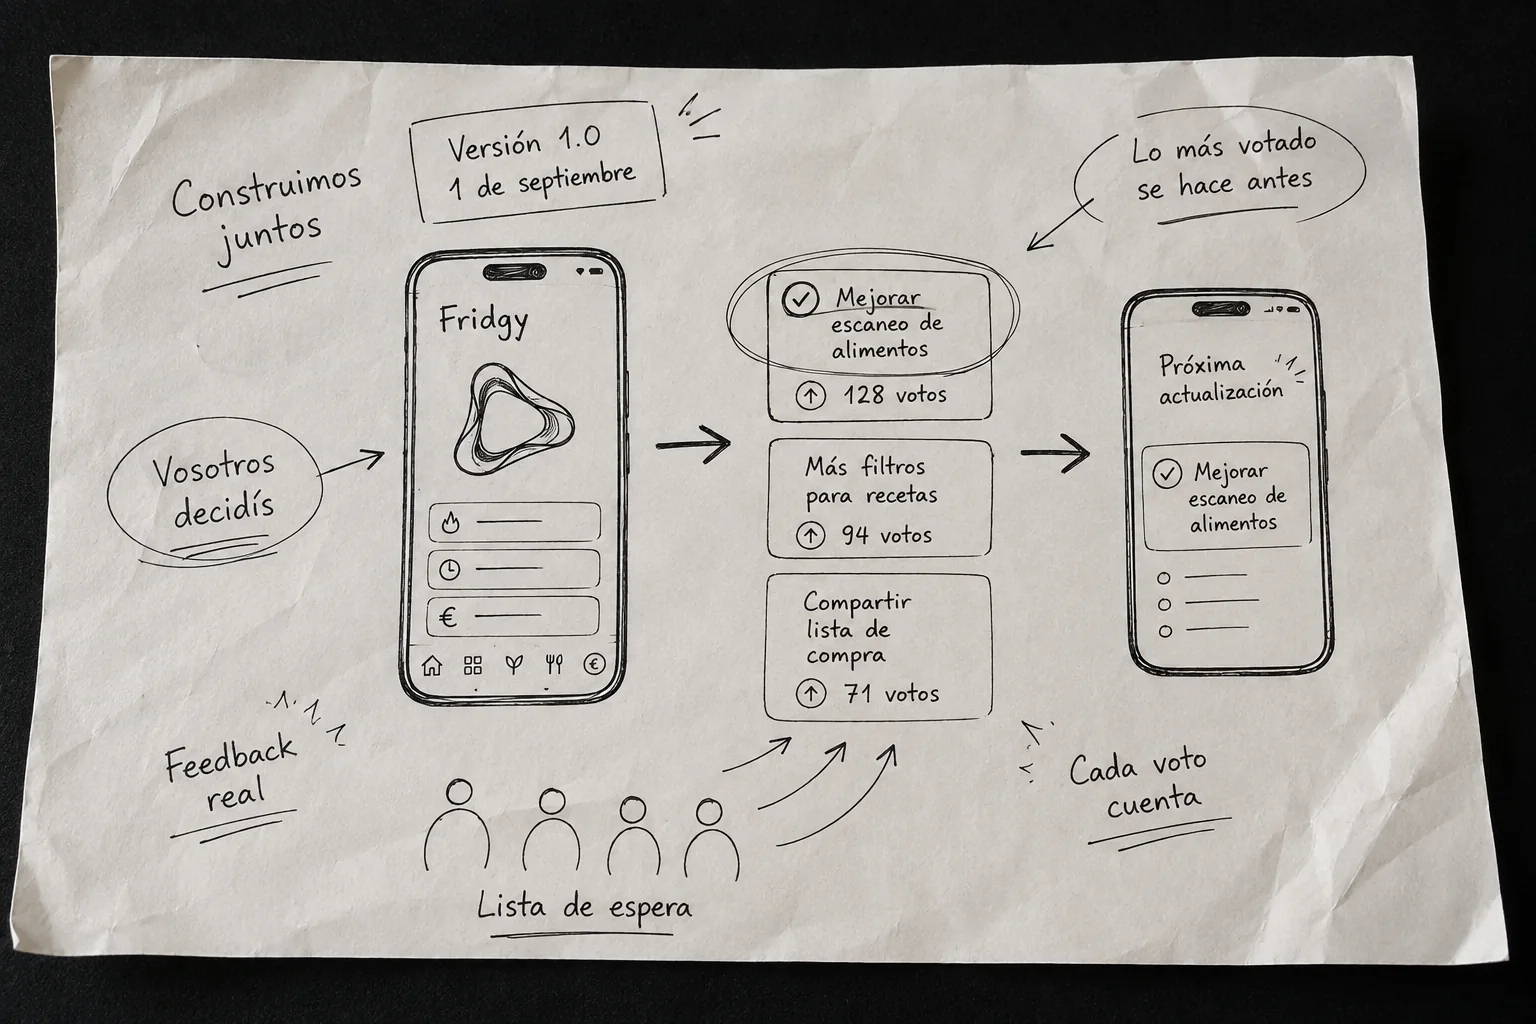 Construimos
juntos
Versión 1.0
1 de septiembre
Lo más votado
se hace antes
Vosotros
decidís
Fridgy
€
€
Mejorar
escaneo de
alimentos
128 votos
Más filtros
para recetas
94 votos
Compartir
lista de
compra
71 votos
Próxima
actualización
Mejorar
escaneo de
alimentos
Feedback
real
Lista de espera
Cada voto
cuenta